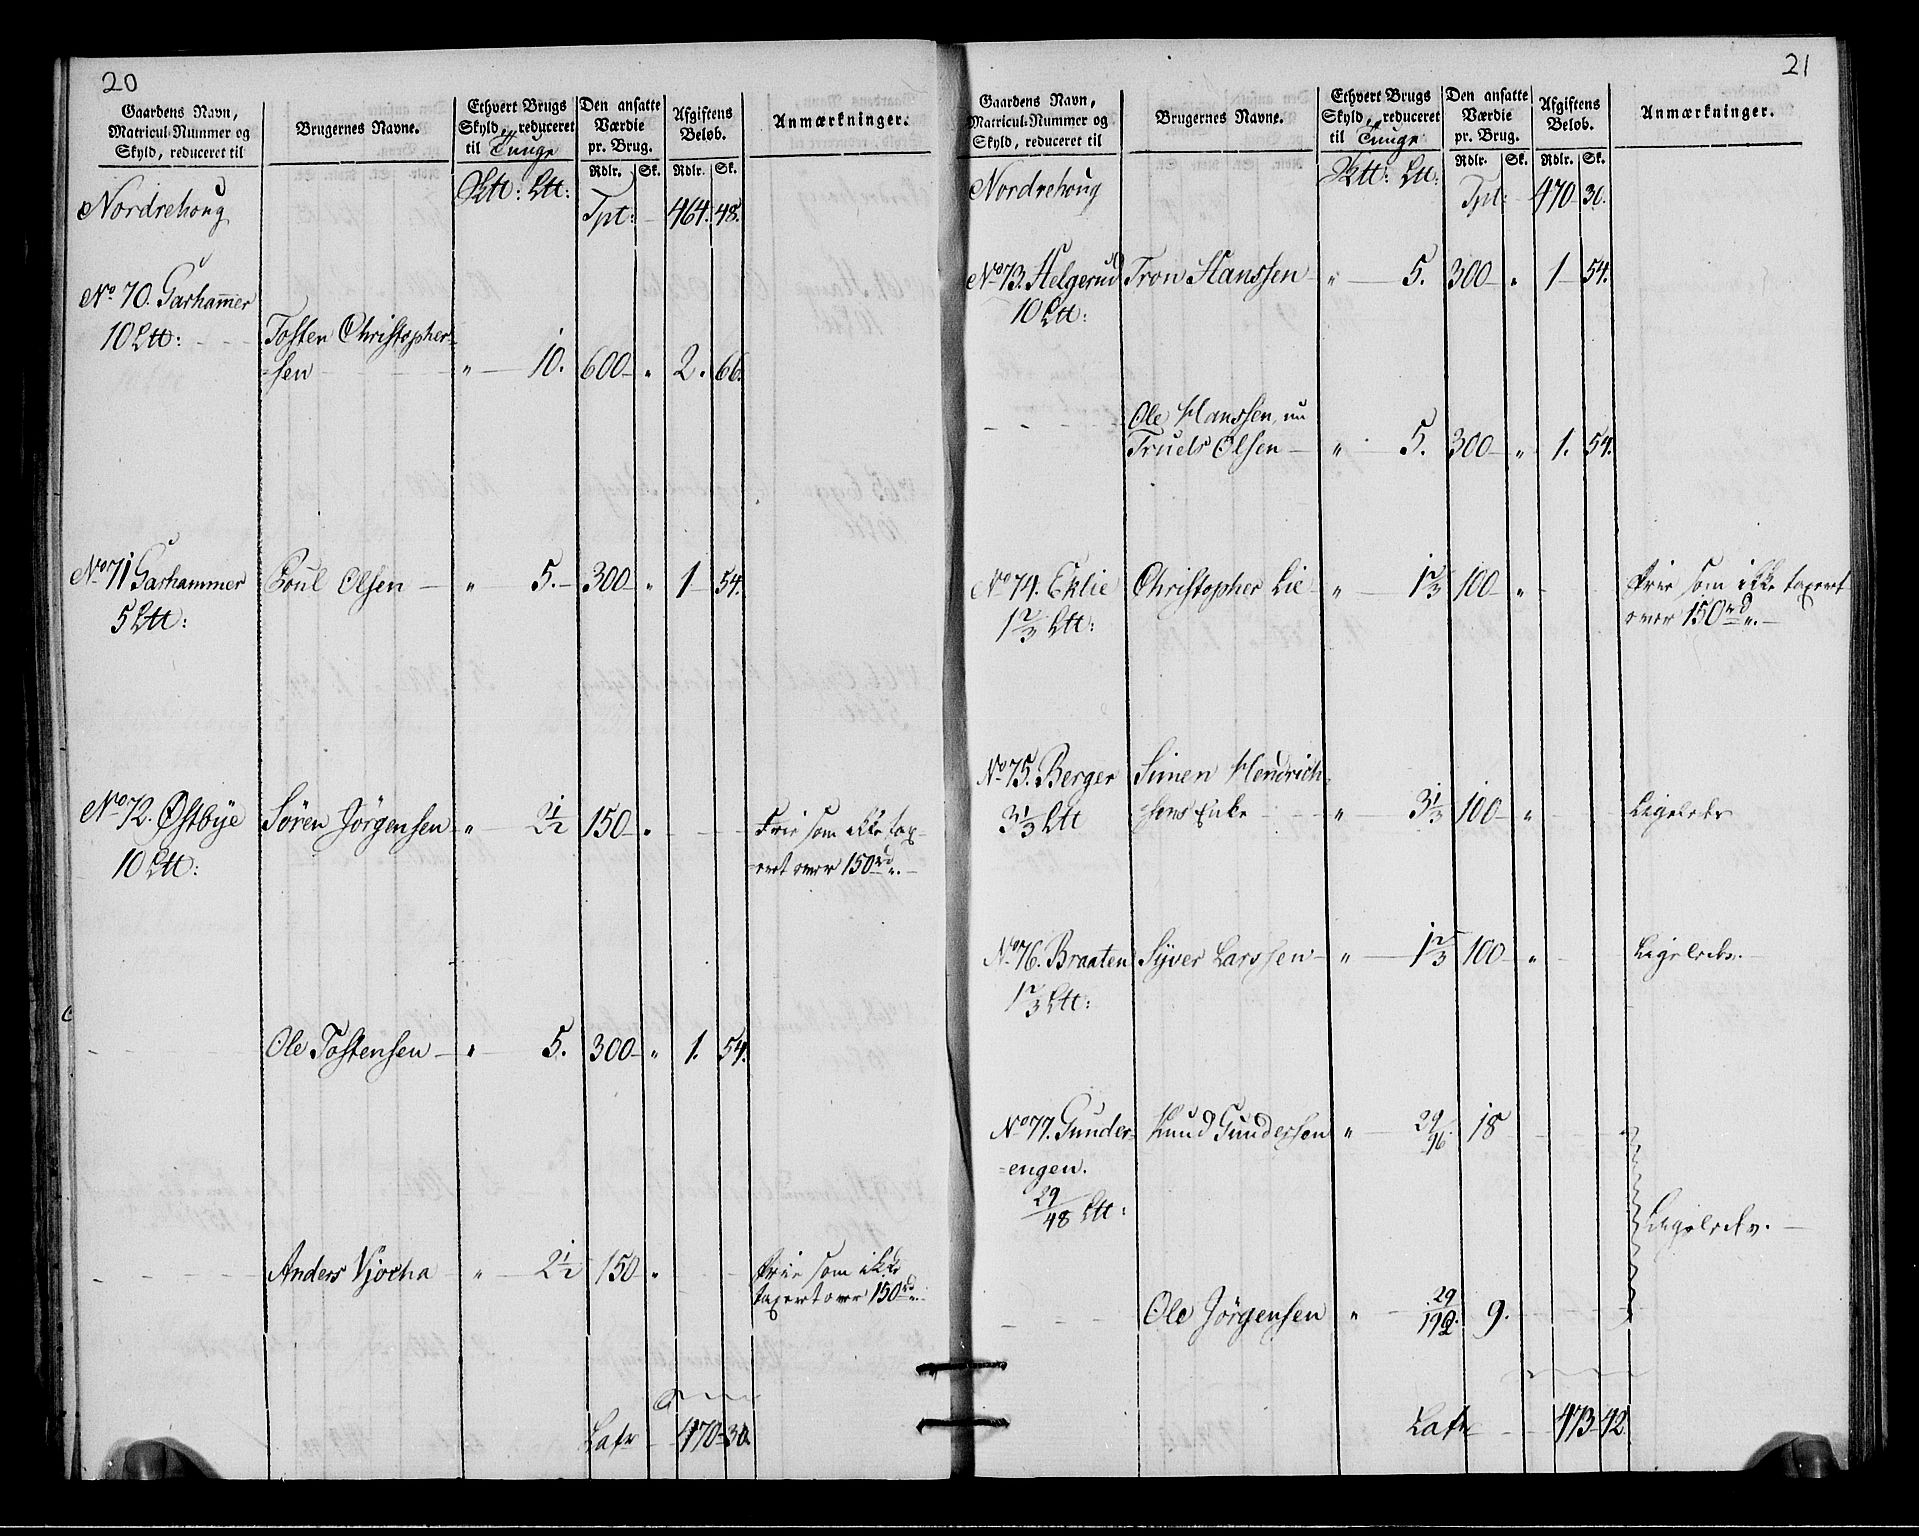 20
Gaardens Navn, Matricul-Nummer og Skyld, reduceret til | Brugernes Navne. | Ethvert Brugs Skyld, reduceret til Tunge | Den ansatte Værdie pr. Brug. | Afgiftens Beløb. | Anmærkninger.
Rdlr. Sk. Rdlr. Sk.
Nordrehoug Sktt: Ltt: Tpt: 464. 48.
No 70. Garhammer
10 Ltt: Tosten Christopher-
-sen " 10. 600 " 2. 66.
No 71 Garhammer Poul Olsen " 5. 300 " 1 54.
5 Ltt:
No 72. Østbye Søren Jörgensen " 2½ 150 " Frie som ikke tax-
10 Ltt: -ert over 150 rd.
Ole Tostensen " 5. 300 " 1. 54.
Anders Vjocha " 2½ 150 " Frie som ikke
taxert over 150 rd.
Latr 470 30.
21
Gaardens Navn, Matricul-Nummer og Skyld, reduceret til | Brugernes Navne. | Ethvert Brugs Skyld, reduceret til Tunge | Den ansatte Værdie pr. Brug. | Afgiftens Beløb. | Anmærkninger.
Rdlr. Sk. Rdlr. Sk.
Nordrehoug Sktt: Ltt: Tpt: 470 30.
No 73. Helgerud Tron Hanssen " 5. 300 " 1 54.
10 Ltt:
Ole Hanssen, nu
Truels Olsen " 5. 300 " 1. 54.
No 74. Eklie Christopher Lie " 1⅔ 100 " Frie som ikke taxert
1⅔ Ltt: over 150 rd.
No 75. Berger Simen Hendrich-
3⅓ Ltt sens Enke " 3⅓ 100 " Ligeledes
No 76. Braaten Syver Larssen " 1⅔ 100 " Ligeledes.
1⅔ Ltt:
No 77. Gunder- Knud Gundersen " 29/96. 18
-engen.
29/48 Ltt: Ligeledes.
Ole Jörgensen " 29/192. 9.
Latr 473 42